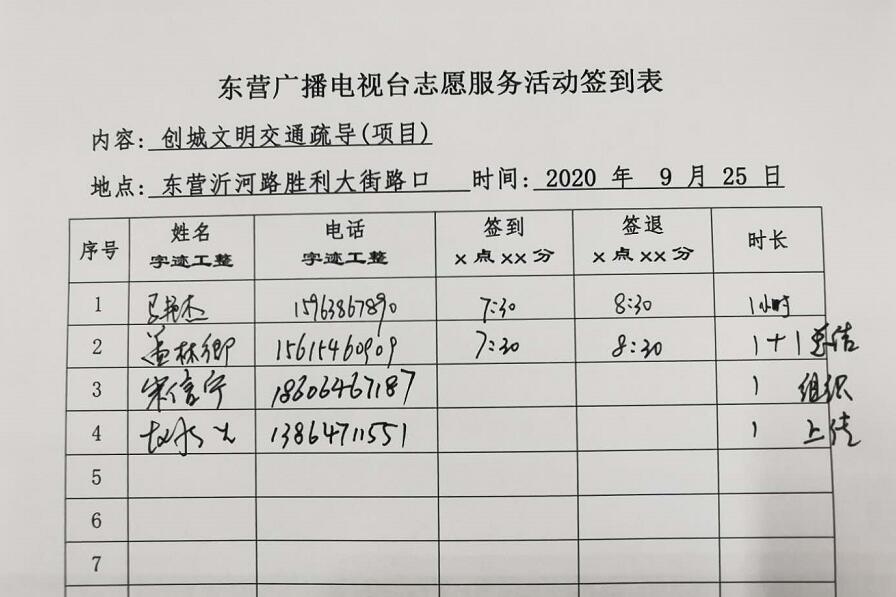 东营广播电视台志愿服务活动签到表
内容: 创城文明交通疏导(项目)
地点: 东营沂河路胜利大街路口 时间: 2020 年 9 月 25 日
序号 姓名 字迹工整 电话 字迹工整 签到 x 点 xx 分 签退 x 点 xx 分 时长
1 15963867890 7:30 8:30 1小时
2 林卿 15615460909 7:30 8:30 1+1总结
3 宋信宁 18606467187 1 组织
4 13864711551 1 上传
5
6
7